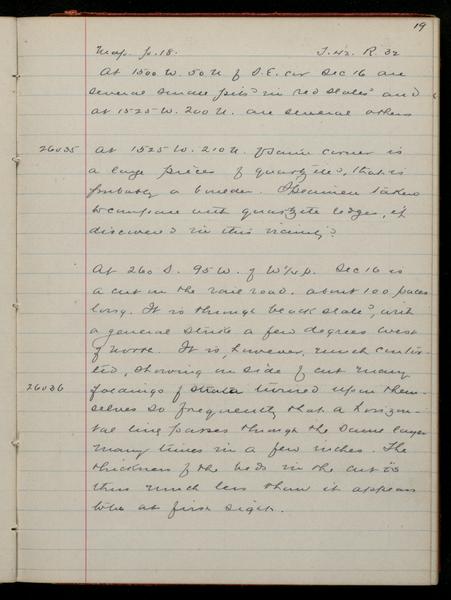 19
Map p. 18. T. 42. R. 32
At 1500 W. 50 N. of S.E. cor Sec 16 are
several small pits in red slates and
at 1525 W. 200 N. are several others
26035 At 1525 W. 210 N. of same corner is
a large pieces of quartzite, that is
probably a boulder. Specimen taken
to compare with quartzite ledges, if
discovered in this vicinity?
At 260 S. 95 W. of W¼p. Sec 16 is
a cut on the rail road, about 100 paces
long. It is through black slate, with
a general strike a few degrees west
of north. It is, however, much contor-
ted, showing in side of cut many
26036 foldings of strata turned upon them-
selves so frequently that a horizon-
tal line passes through the same layer
many times in a few inches. The
thickness of the beds in the cut is
thus much less than it appears
to be at first sight.